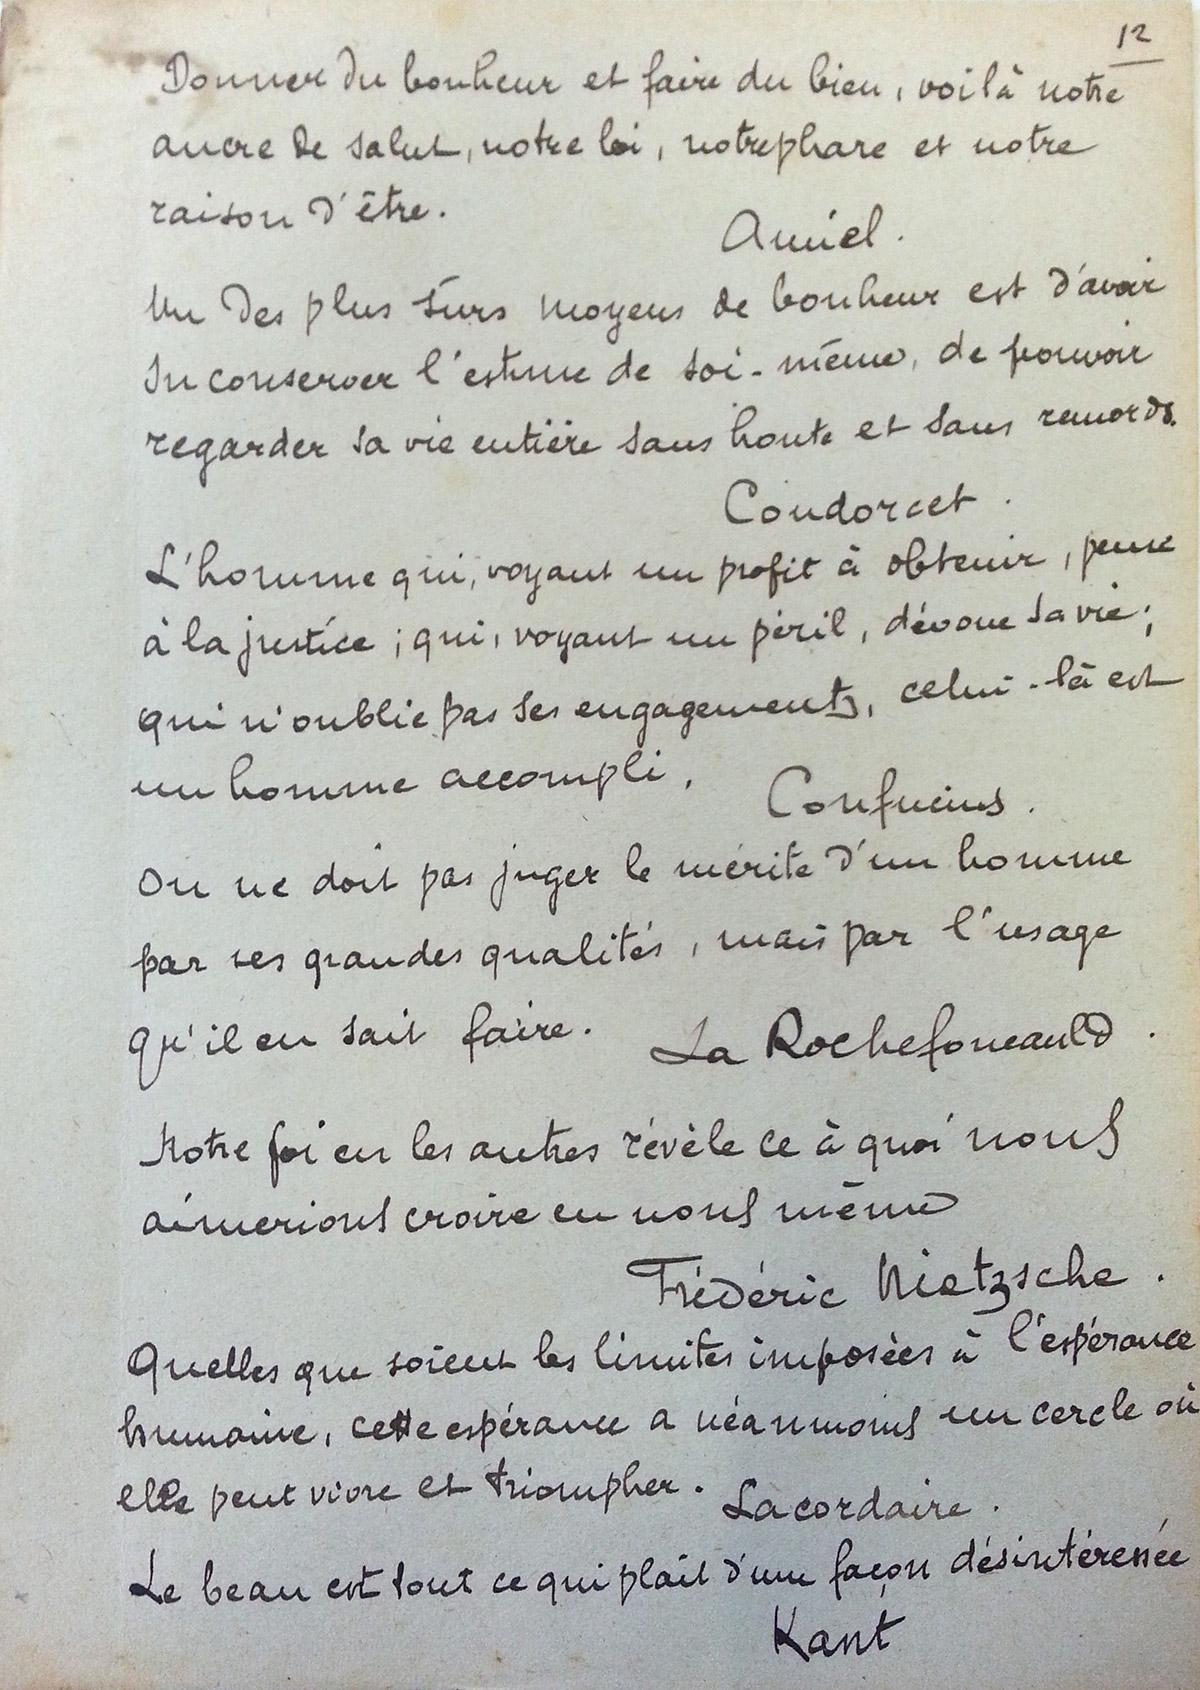 12
Donner du bonheur et faire du bien, voilà notre
ancre de salut, notre loi, notre phare et notre
raison d'être.
Amiel.
Un des plus sûrs moyens de bonheur est d'avoir
su conserver l'estime de soi-même, de pouvoir
regarder sa vie entière sans honte et sans remords.
Condorcet.
L'homme qui, voyant un profit à obtenir, pense
à la justice ; qui, voyant un péril, dévoue sa vie ;
qui n'oublie pas ses engagements, celui-là est
un homme accompli.
Confucius.
On ne doit pas juger le mérite d'un homme
par ses grandes qualités, mais par l'usage
qu'il en sait faire.
La Rochefoucauld.
Notre foi en les autres révèle ce à quoi nous
aimerions croire en nous même
Frédéric Nietzsche.
Quelles que soient les limites imposées à l'espérance
humaine, cette espérance a néanmoins un cercle où
elle peut vivre et triompher.
Lacordaire.
Le beau est tout ce qui plait d'une façon désintéressée
Kant